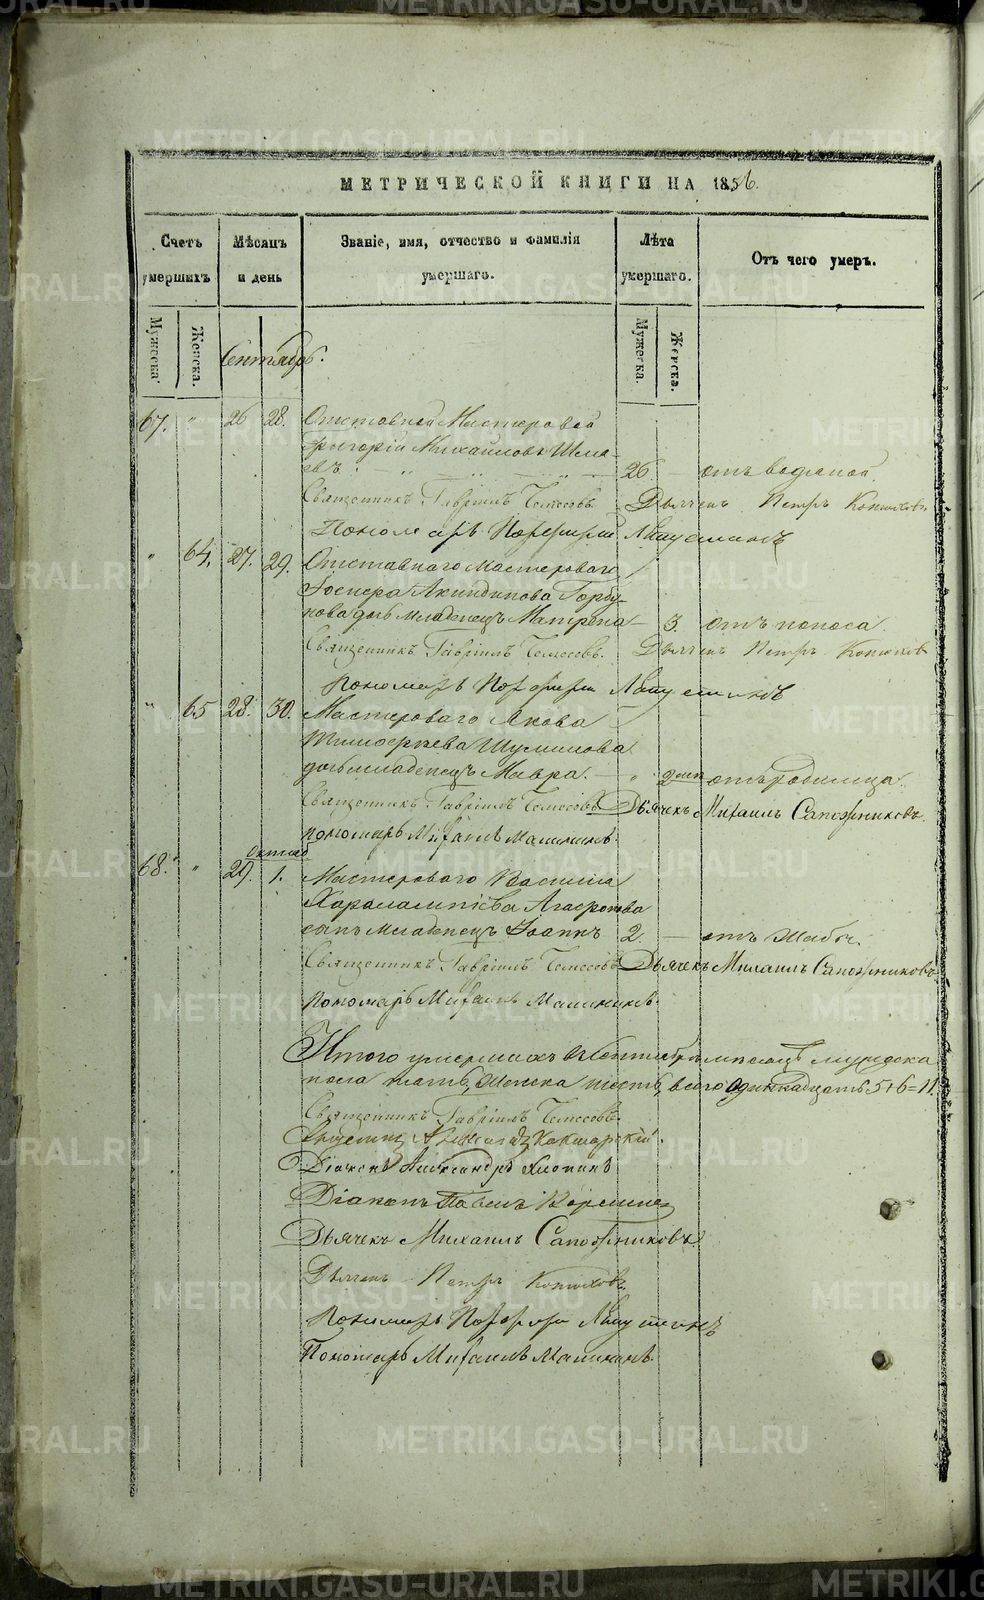 МЕТРИЧЕСКОЙ КНИГИ НА 1856.
Счетъ умершихъ
Мѣсяцъ и день
Званіе, имя, отчество и фамилія умершаго.
Лѣта умершаго.
Отъ чего умеръ.
Мужеска.
Женска.
Мужеска.
Женска.
Сентябрь.
67. " 26 28. Отставной Мастеровой
Григорій Михайловъ
26 — отъ водяной.
Священникъ Гавріилъ Дьячекъ Петръ Конюховъ
Пономарь Порфирій
" 64. 27. 29. Отставнаго мастероваго
Акиндинова Горбу-
нова дочь младенецъ Матрена — 3. отъ поноса.
Священникъ Гавріилъ Дьячекъ Петръ Конюховъ
Пономарь Порфирій
" 65 28. 30. Мастероваго Якова
Тимофеева Шумилова
дочь младенецъ Мавра. — " отъ родимца.
Священникъ Гавріилъ Дьячекъ Михаилъ Сапожниковъ.
пономарь Михаилъ Малининъ.
68. " 29. 1. Мастероваго Василія
Харалампіева Агафонова
сынъ младенецъ Іоаннъ 2. — отъ жабы.
Священникъ Гавріилъ Дьячекъ Михаилъ Сапожниковъ
Пономарь Михаилъ Малининъ.
Итого умершихъ въ Сентябрѣ мѣсяцѣ мужеска
пола пять, женска шесть, всего одиннадцать 5+6=11.
Священникъ Гавріилъ
Священникъ
Діаконъ Александръ
Діаконъ Павелъ
Дьячекъ Михаилъ Сапожниковъ.
Дьячекъ Петръ Конюховъ.
Пономарь Порфирій
Пономарь Михаилъ Малининъ.
METRIKI.GASO-URAL.RU